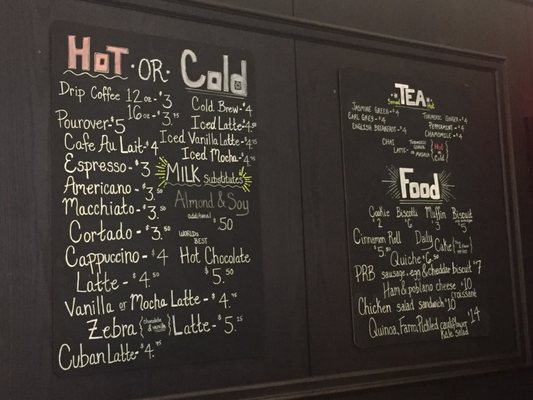 HOT OR Cold
Drip Coffee 12oz - $3
16oz - $3.75
Pourover - $5
Cafe Au Lait - $4
Espresso - $3
Americano - $3.50
Macchiato - $3.50
Cortado - $3.50
Cappuccino - $4
Latte - $4.50
Vanilla or Mocha Latte - $4.75
Zebra {chocolate & vanilla} Latte - $5.25
Cuban Latte - $4.75
Cold Brew - $4
Iced Latte - $4.50
Iced Vanilla Latte - $4.75
Iced Mocha - $4.75
MILK Substitutes
Almond & Soy
additional $.50
WORLDS BEST
Hot Chocolate
$5.50
TEA
Served Hot
JASMINE GREEN - $4
EARL GREY - $4
ENGLISH BREAKFAST - $4
CHAI LATTE
TURMERIC GINGER - $4
PEPPERMINT - $4
CHAMOMILE - $4
{Hot or Cold}
Food
Cookie Biscotti Muffin Biscuit
2 $2 3
Cinnamon Roll Daily Cake
$5.50
Quiche - $6.50
PRB sausage, egg & cheddar biscuit $7
Ham & poblano cheese $10
croissant
Chicken salad sandwich $10
Quinoa, Farro, Pickled cauliflower $14
Kale salad